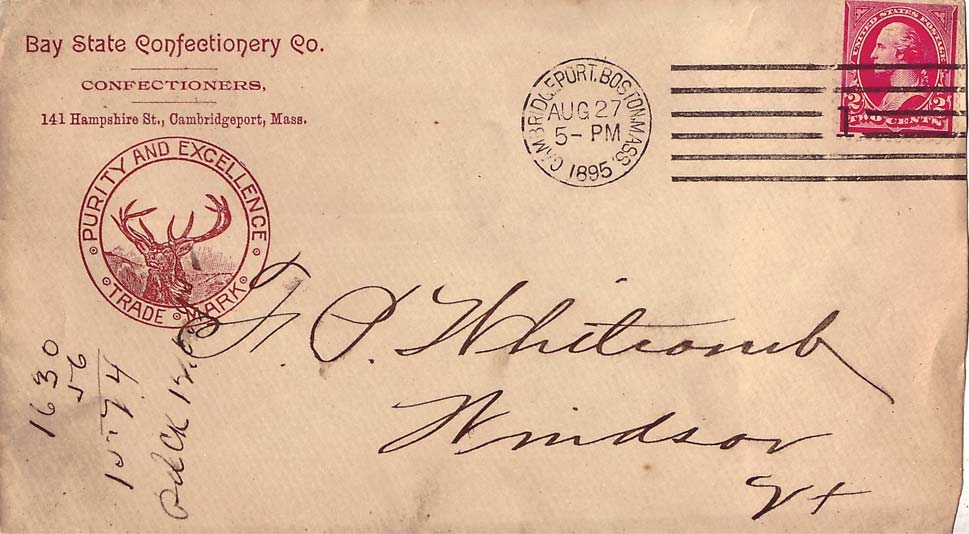 Bay State Confectionery Co.
CONFECTIONERS,
141 Hampshire St., Cambridgeport, Mass.
PURITY AND EXCELLENCE
TRADE MARK
CAMBRIDGEPORT, BOSTON, MASS.
AUG 27
5-PM
1895
1
UNITED STATES POSTAGE
2 2
TWO CENTS
F. P. Whitcomb
Windsor
Vt
1630
56
1574